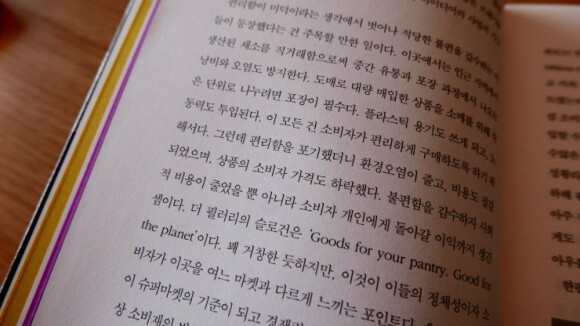 편리함이 미덕이라는 생각에서 벗어나 적당한 불편을 감수하는
들이 등장했다는 건 주목할 만한 일이다. 이곳에서는 인근 지역에서
생산된 채소를 직거래함으로써 중간 유통과 포장 과정에서 나오는
낭비와 오염도 방지한다. 도매로 대량 매입한 상품을 소매를 위해 작
은 단위로 나누려면 포장이 필수다. 플라스틱 용기도 쓰게 되고, 노
동력도 투입된다. 이 모든 건 소비자가 편리하게 구매하도록 하기 위
해서다. 그런데 편리함을 포기했더니 환경오염이 줄고, 비용도 절감
되었으며, 상품의 소비자 가격도 하락했다. 불편함을 감수하자 사회
적 비용이 줄었을 뿐 아니라 소비자 개인에게 돌아갈 이익까지 생긴
셈이다. 더 필러리의 슬로건은 'Goods for your pantry. Good for
the planet'이다. 꽤 거창한 듯하지만, 이것이 이들의 정체성이자 소
비자가 이곳을 여느 마켓과 다르게 느끼는 포인트다.
이 슈퍼마켓의 기준이 되고
상 소비재의